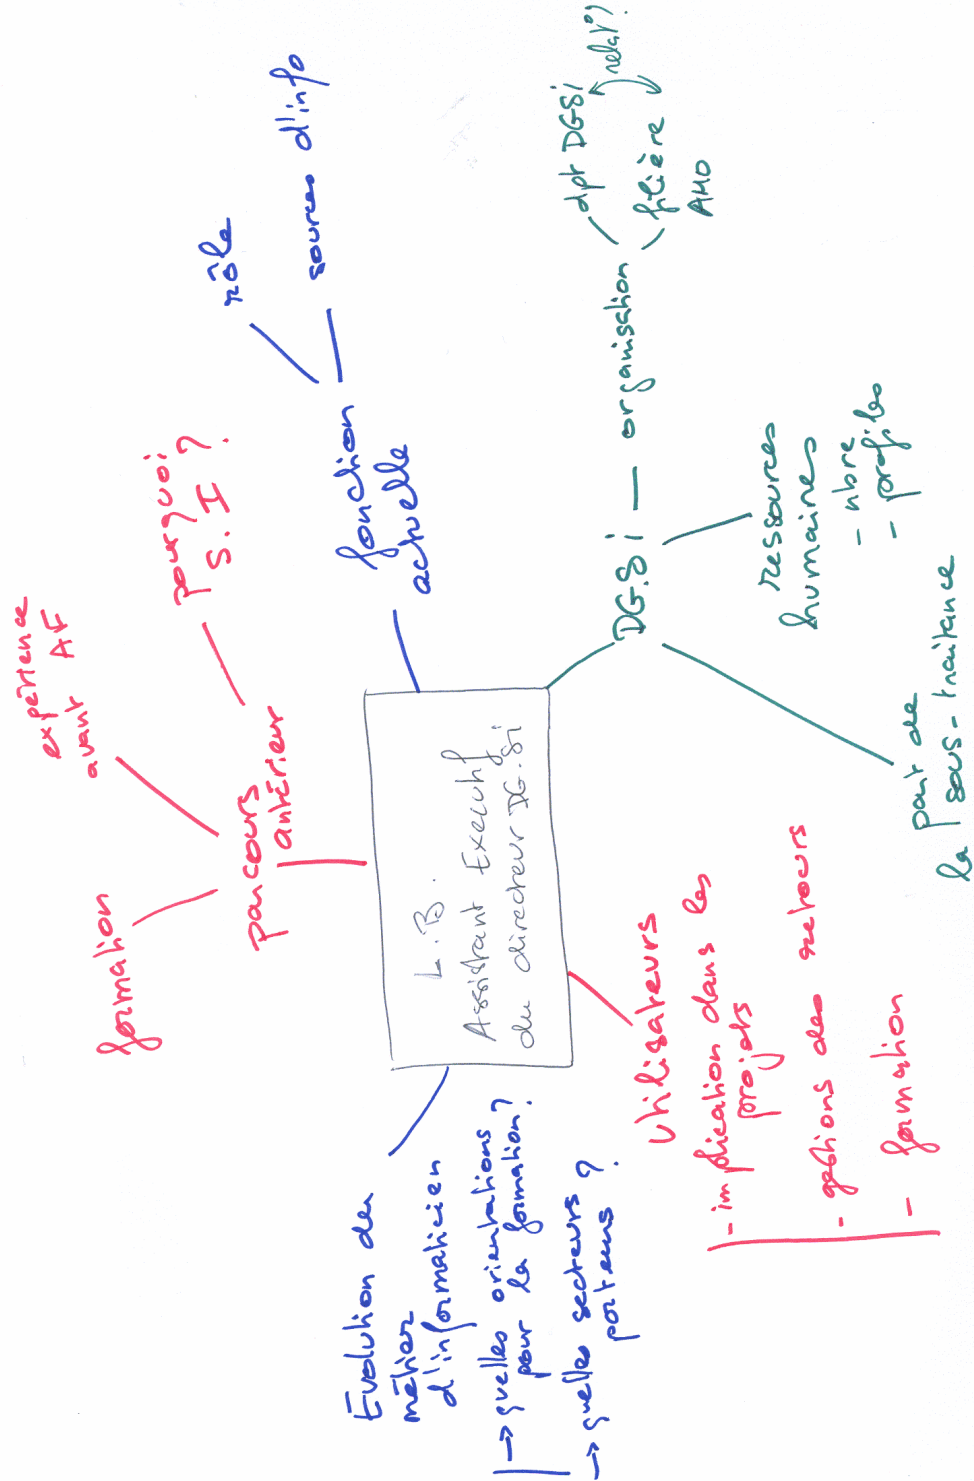 L.B.
Assistant Executif
du directeur DG.Si
parcours
antérieur
formation
expérience
avant AF
pourquoi
S.I ?
fonction
actuelle
rôle
sources d'info
DG.Si
organisation
dpt DGSi
filière
AMO
relat° ?
ressources
humaines
- nbre
- profiles
part de
la sous-traitance
utilisateurs
- implication dans les
projets
- gestions des retours
- formation
Evolution du
métier
d'informaticien
→ quelles orientations
pour la formation ?
→ quelles secteurs
porteurs ?